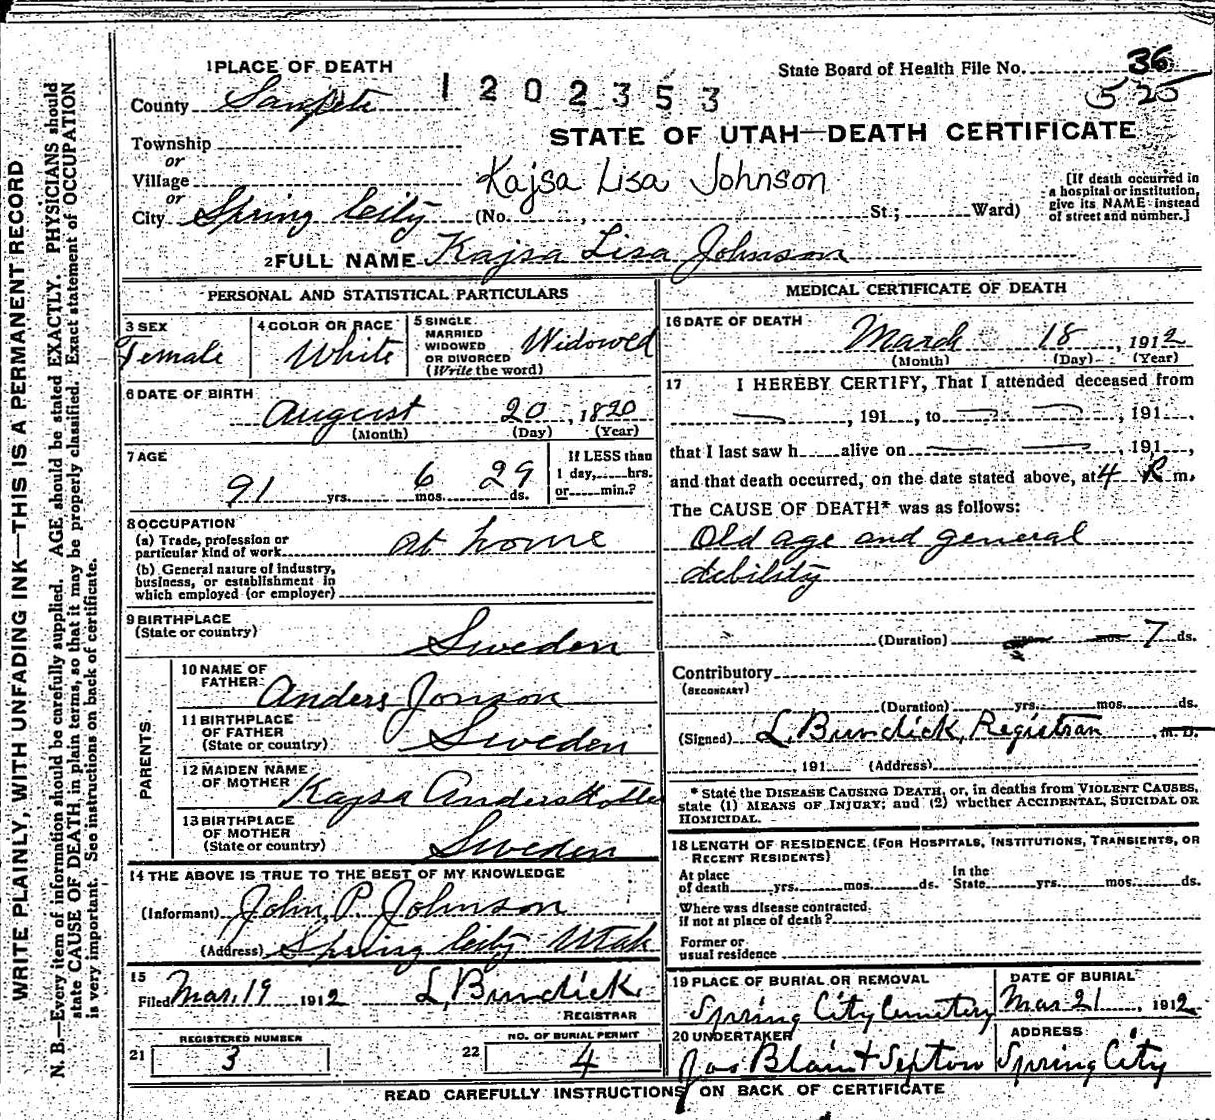 1 PLACE OF DEATH
State Board of Health File No. 36
County Sanpete
1202353
5 25
STATE OF UTAH—DEATH CERTIFICATE
Township
or
Village
Kajsa Lisa Johnson
or
City Spring City (No. , St.; Ward)
[If death occurred in
a hospital or institution,
give its NAME instead
of street and number.]
2 FULL NAME Kajsa Lisa Johnson
PERSONAL AND STATISTICAL PARTICULARS
3 SEX
Female
4 COLOR OR RACE
White
5 SINGLE
MARRIED
WIDOWED
OR DIVORCED
(Write the word)
Widowed
6 DATE OF BIRTH
August 20, 1820
(Month) (Day) (Year)
7 AGE
91 yrs. 6 mos. 29 ds.
If LESS than
1 day, hrs.
or min.?
8 OCCUPATION
(a) Trade, profession or
particular kind of work at home
(b) General nature of industry,
business, or establishment in
which employed (or employer)
9 BIRTHPLACE
(State or country)
Sweden
PARENTS
10 NAME OF
FATHER
Anders Jonson
11 BIRTHPLACE
OF FATHER
(State or country)
Sweden
12 MAIDEN NAME
OF MOTHER
Kajsa
13 BIRTHPLACE
OF MOTHER
(State or country)
Sweden
14 THE ABOVE IS TRUE TO THE BEST OF MY KNOWLEDGE
(Informant) John P. Johnson
(Address) Spring City Utah
15
Filed Mar. 19 1912 L. Burdick
REGISTRAR
REGISTERED NUMBER
21 3
NO. OF BURIAL PERMIT
22 4
MEDICAL CERTIFICATE OF DEATH
16 DATE OF DEATH
March 18, 1912
(Month) (Day) (Year)
17 I HEREBY CERTIFY, That I attended deceased from
, 191 , to , 191 ,
that I last saw h alive on , 191 ,
and that death occurred, on the date stated above, at 4 P. m.
The CAUSE OF DEATH* was as follows:
Old age and general
debility
(Duration) yrs. mos. 7 ds.
Contributory
(SECONDARY)
(Duration) yrs. mos. ds.
(Signed) L. Burdick, Registrar M. D.
, 191 (Address)
* State the DISEASE CAUSING DEATH, or, in deaths from VIOLENT CAUSES,
state (1) MEANS OF INJURY; and (2) whether ACCIDENTAL, SUICIDAL OR
HOMICIDAL.
18 LENGTH OF RESIDENCE (FOR HOSPITALS, INSTITUTIONS, TRANSIENTS, OR
RECENT RESIDENTS)
At place
of death yrs. mos. ds.
In the
State yrs. mos. ds.
Where was disease contracted,
if not at place of death?
Former or
usual residence
19 PLACE OF BURIAL OR REMOVAL
Spring City Cemetery
DATE OF BURIAL
Mar 21, 1912
20 UNDERTAKER
Jas. Blain +
ADDRESS
Spring City
READ CAREFULLY INSTRUCTIONS ON BACK OF CERTIFICATE
WRITE PLAINLY, WITH UNFADING INK—THIS IS A PERMANENT RECORD
N. B.—Every item of information should be carefully supplied. AGE should be stated EXACTLY. PHYSICIANS should
state CAUSE OF DEATH in plain terms, so that it may be properly classified. Exact statement of OCCUPATION
is very important. See instructions on back of certificate.